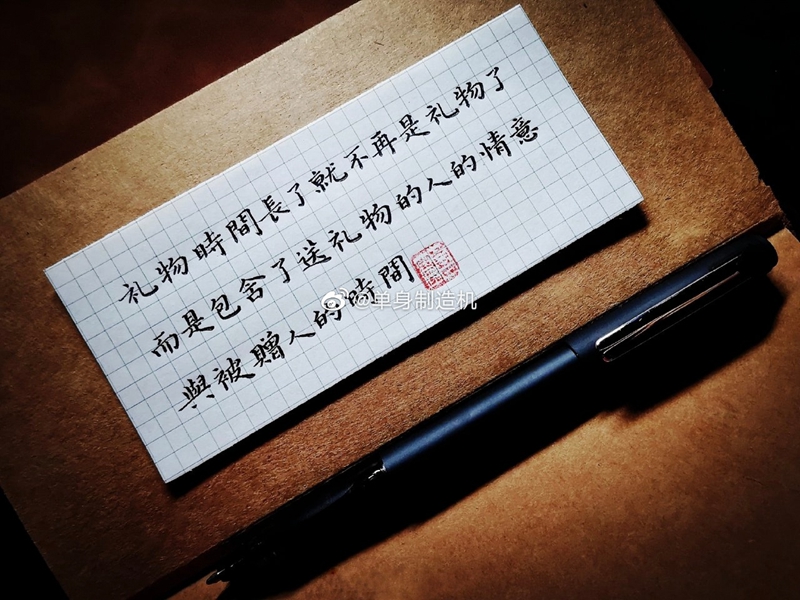 礼物時間長了就不再是礼物了
而是包含了送礼物的人的情意
與被贈人的時間
@单身制造机